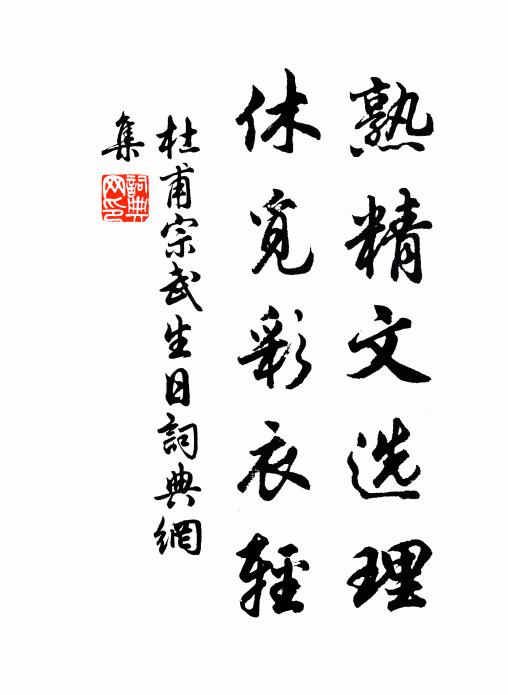 熟精文选理
休觅彩衣輕
杜甫宗武生日詞典網
集
詞典
网印